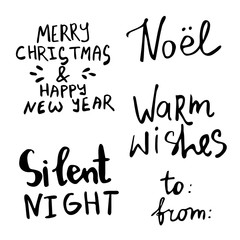 MERRY
CHRISTMAS
&
HAPPY
NEW YEAR
Noël
Warm
wishes
Silent
NIGHT
to:
from: